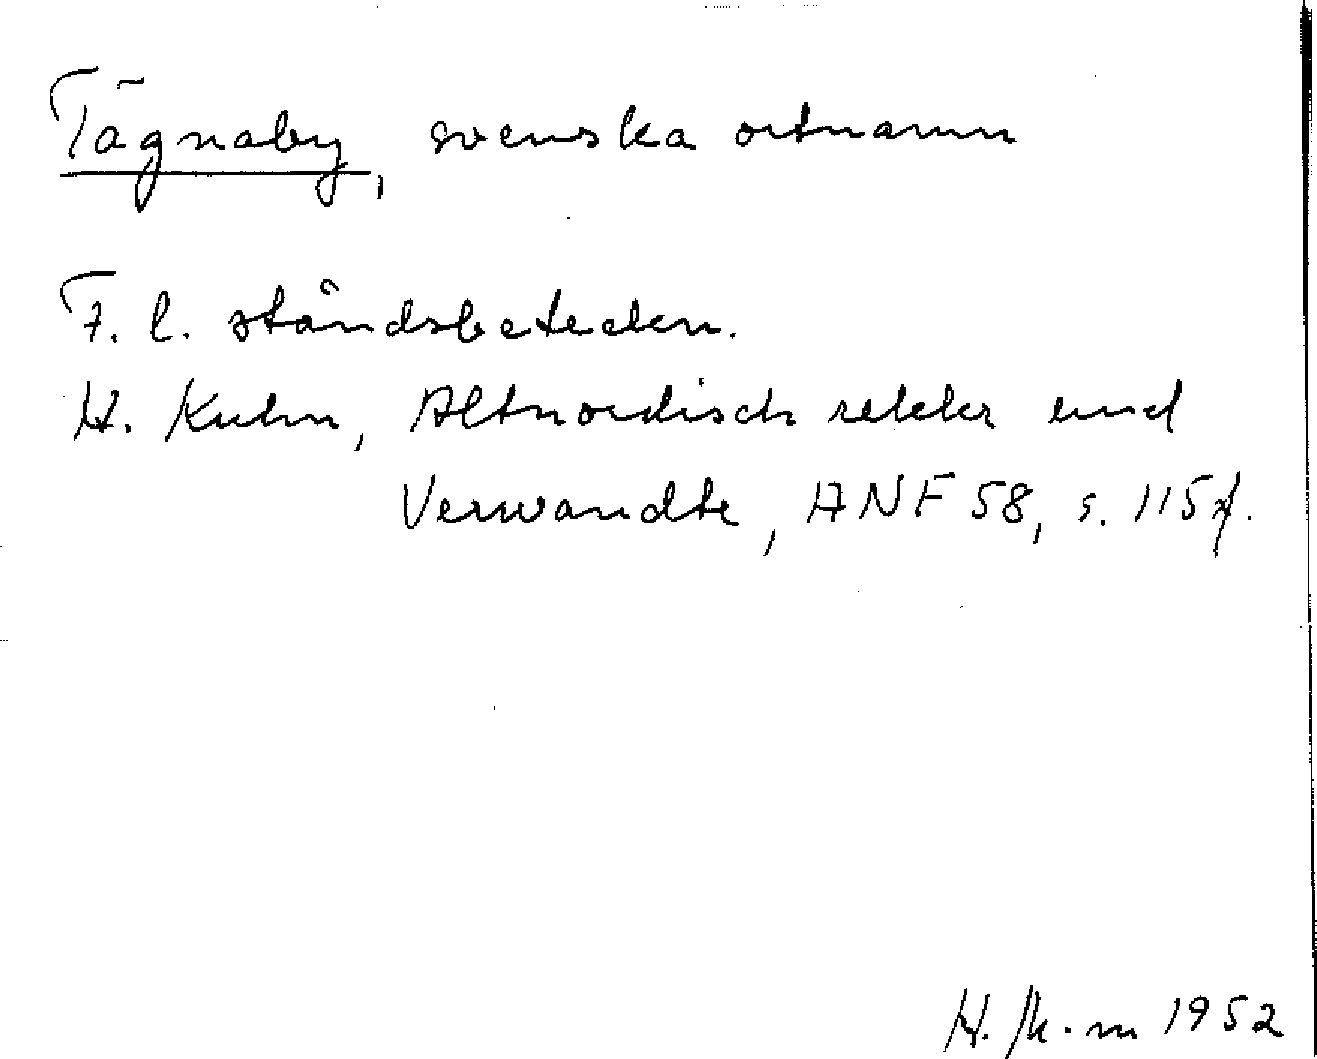 Tägnaby, svenska ortnamn
F. l. ståndsbeteckn.
H. Kuhn, Altnordisch rekkr und
Verwandte, ANF 58, s. 115 f.
1952